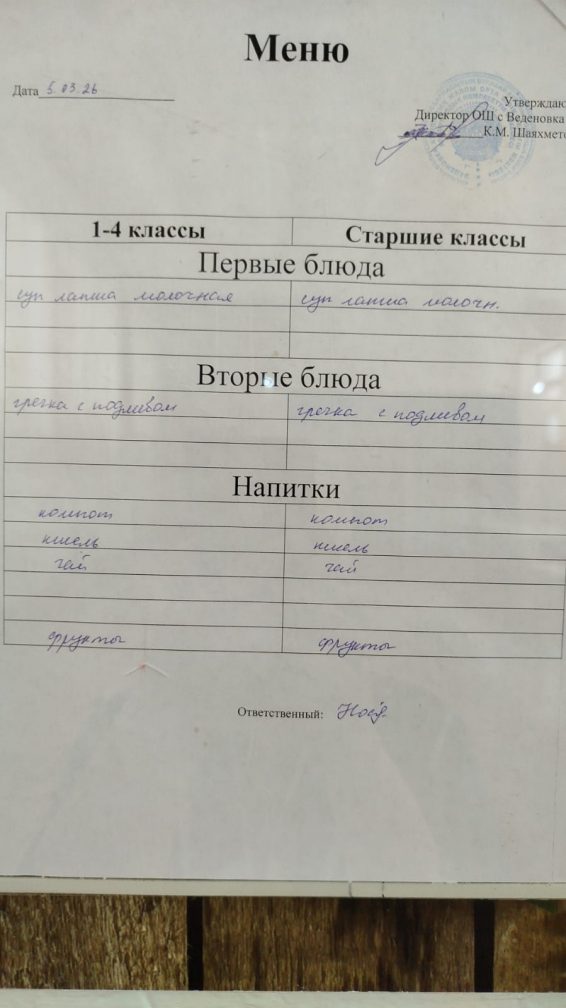 Меню
Дата 5 03 26
Утверждаю
Директор ОШ с Веденовка
К.М. Шаяхмето
1-4 классы Старшие классы
Первые блюда
суп лапша молочная суп лапша молочн.
Вторые блюда
гречка с подливом гречка с подливом
Напитки
компот компот
кисель кисель
чай чай
фрукты фрукты
Ответственный: